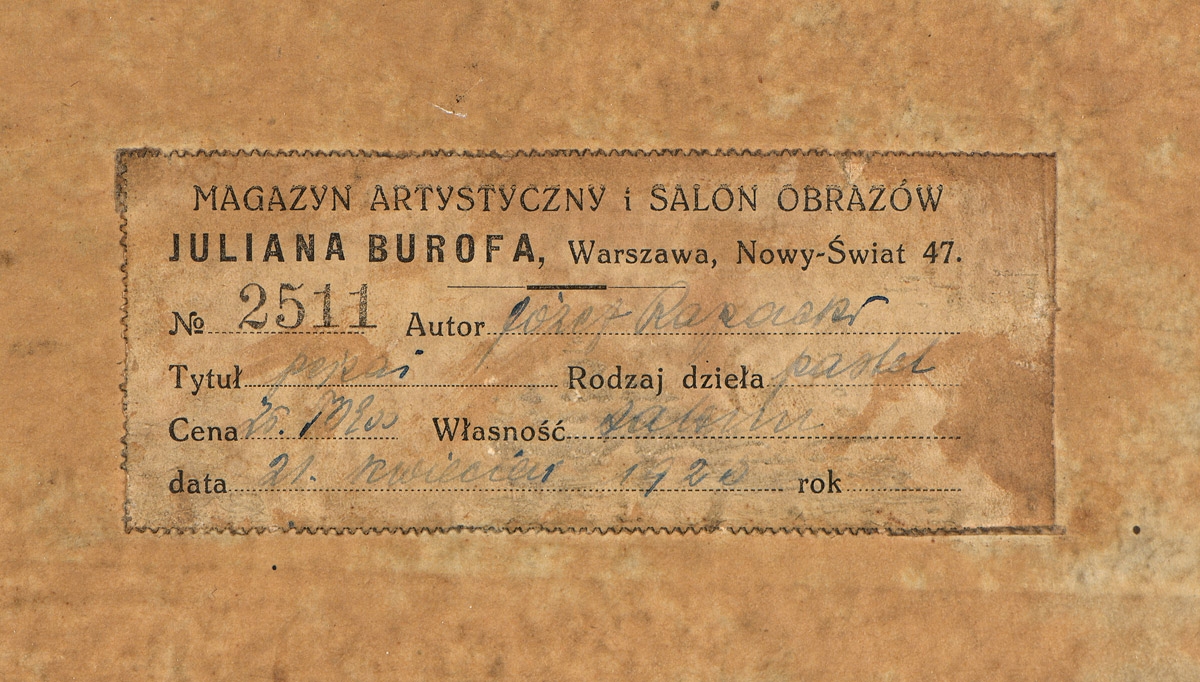 MAGAZYN ARTYSTYCZNY i SALON OBRAZÓW
JULIANA BUROFA, Warszawa, Nowy-Świat 47.
№ 2511 Autor Józef
Tytuł Rodzaj dzieła pastel
Cena Własność
data 21. kwiecień rok